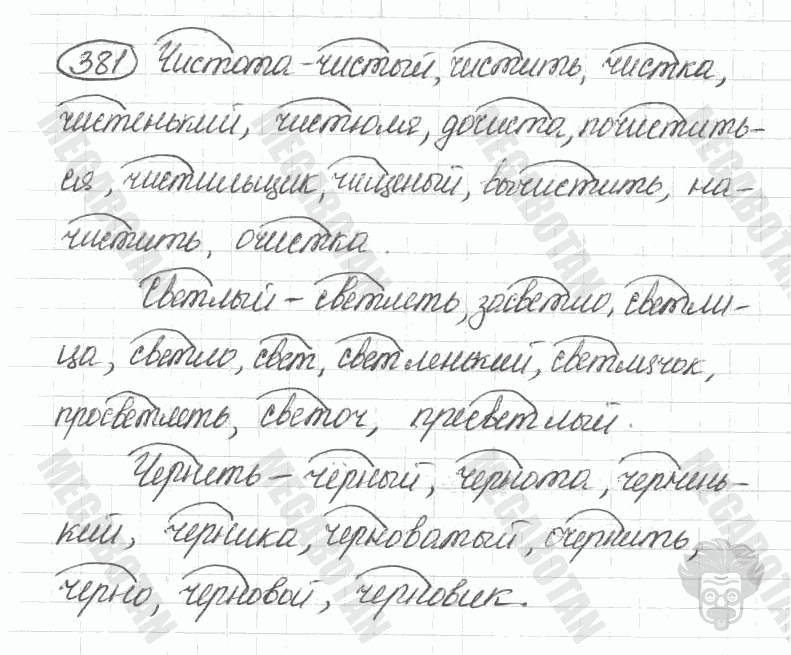 381 Чистота - чистый, чистить, чистка,
чистенький, чистюля, дочиста, почистить-
ся, чистильщик, чищеный, вычистить, на-
чистить, очистка.
Светлый - светлеть, засветло, светли-
ца, светло, свет, светленький, светлячок,
просветлеть, светоч, пресветлый.
Чернеть - чёрный, чернота, чернень-
кий, черника, черноватый, очернить,
черно, черновой, черновик.
MEGABOTAN